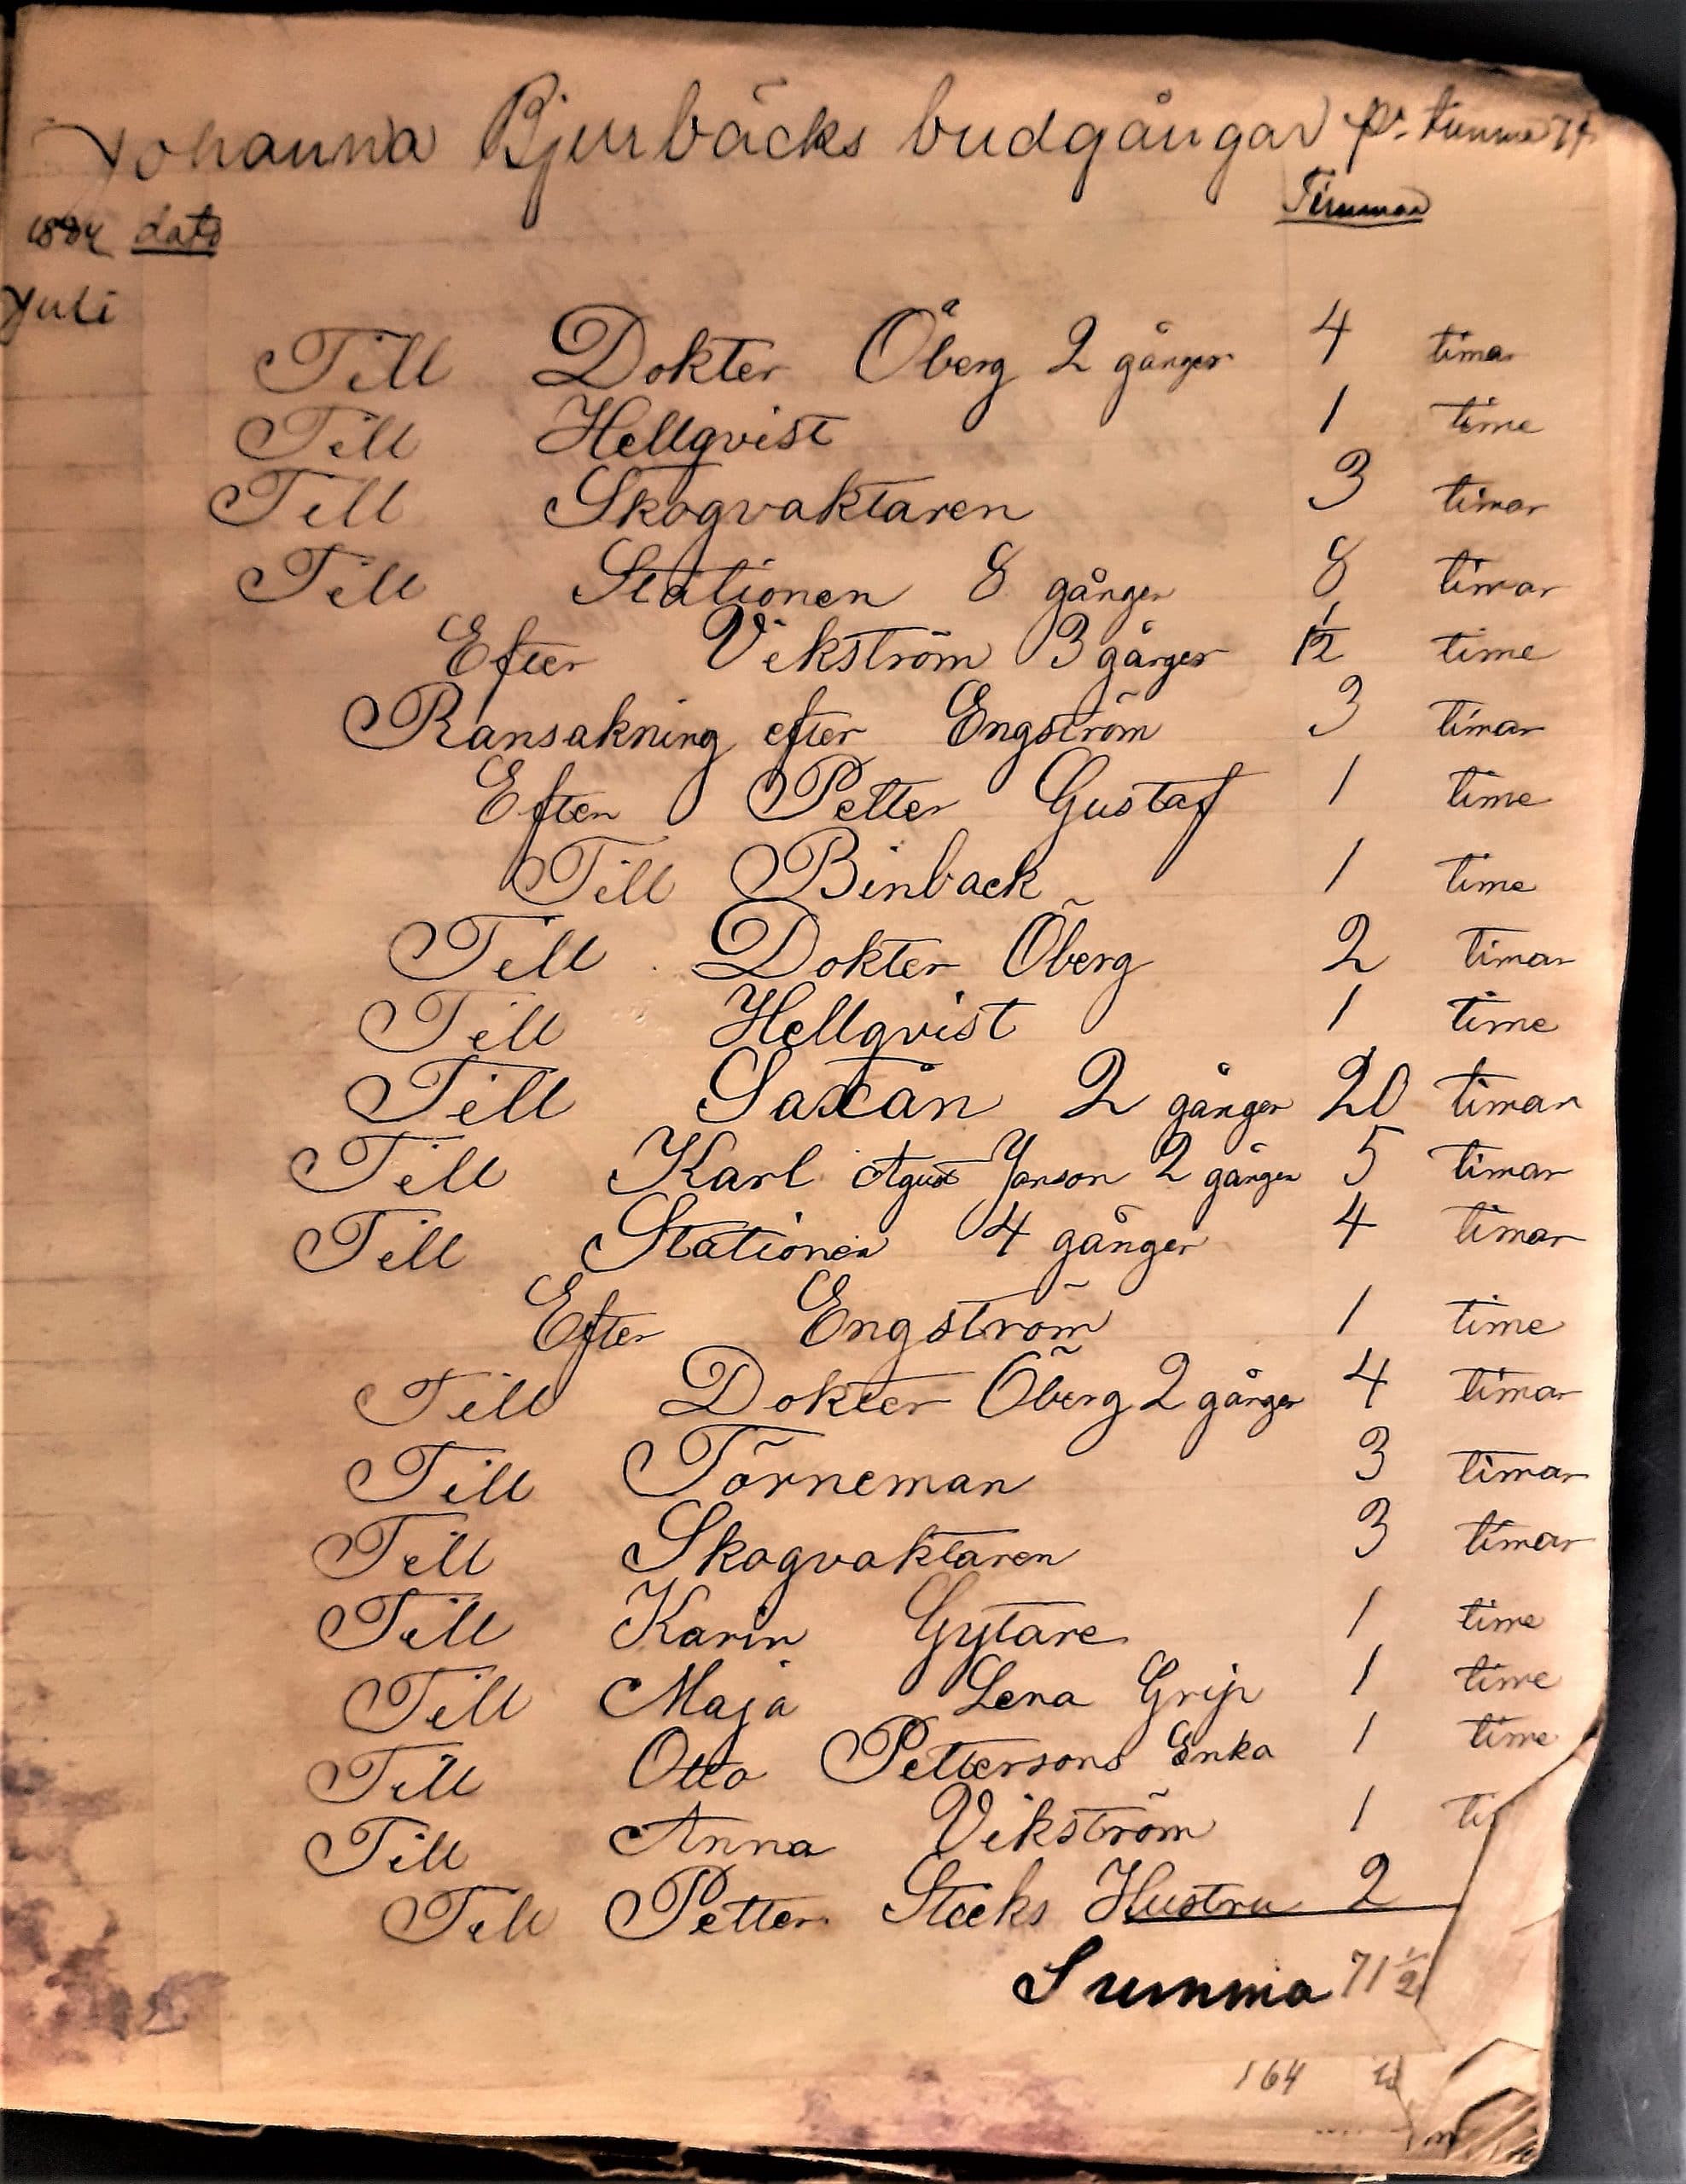 Johanna Bjurbäcks budgångar pr. timma 7
Timmar
1884 dato
Juli
Till Dokter Öberg 2 gånger 4 timar
Till Hellqvist 1 time
Till Skogvaktaren 3 timar
Till Stationen 8 gånger 8 timar
Efter Vikström 3 gånger 1½ time
Ransakning efter Engström 3 timar
Efter Petter Gustaf 1 time
Till Binback 1 time
Till Dokter Öberg 2 timar
Till Hellqvist 1 time
Till Saxån 2 gånger 20 timar
Till Karl Agust Janson 2 gånger 5 timar
Till Stationen 4 gånger 4 timar
Efter Engström 1 time
Till Dokter Öberg 2 gånger 4 timar
Till Törneman 3 timar
Till Skogvaktaren 3 timar
Till Karin Gytare 1 time
Till Maja Lena Grip 1 time
Till Otto Pettersons Enka 1 time
Till Anna Vikström 1 ti
Till Petter Steeks Hustru 2
Summa 71½
164